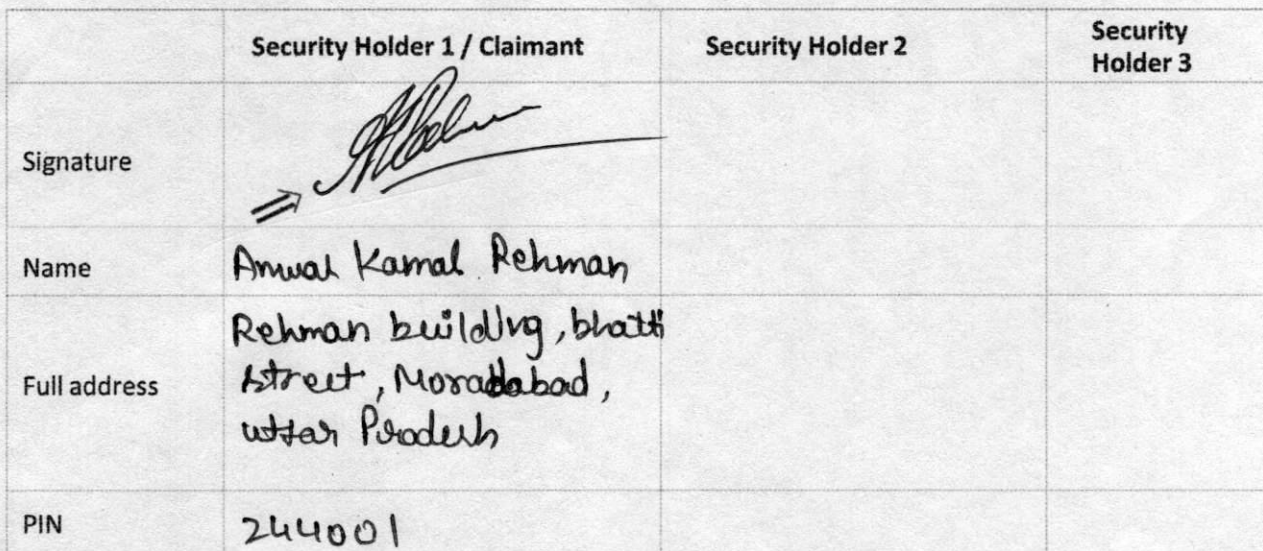 Security Holder 1 / Claimant Security Holder 2 Security
Holder 3
Signature
Name Anwar Kamal Rehman
Rehman building, bhatti
Full address street, Moradabad,
uttar Pradesh
PIN 244001